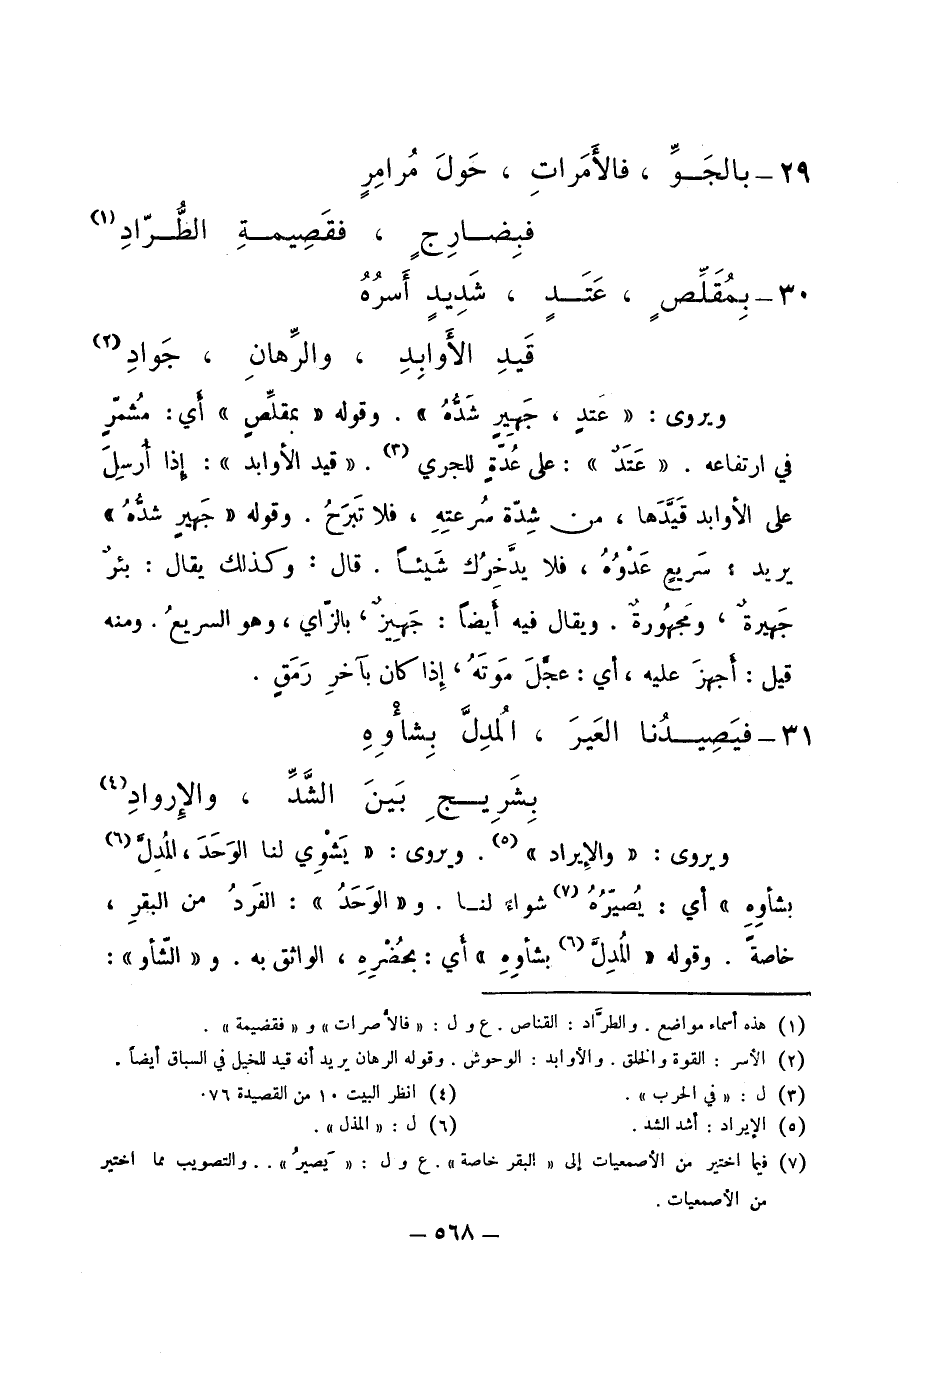 ٢٩ – بالجَوِّ ، فالأَمَراتِ ، حَولَ مُرامِرٍ
فبِضارِجٍ ، فقَصِيمةِ الطُّرّادِ (١)
٣٠ – بِمُقَلِّصٍ ، عَتَدٍ ، شَدِيدٍ أَسرُهُ
قَيدِ الأَوابِدِ ، والرِّهانِ ، جَوادِ (٢)
ويروى : « عَتدٍ ، جَهِيرٍ شَدُّهُ » . وقوله « بمقلِّصٍ » أَي : مُشمرٍّ
في ارتفاعه . « عَتَدٌ » : على عُدّةٍ للجري (٣) . « قيد الأوابد » : إِذا أُرسِلَ
على الأوابد قَيَّدَها ، من شِدّة سُرعتهِ ، فلا تَبرَحُ . وقوله « جَهِيرٍ شدُّهُ »
يريد : سَريعٍ عَدْوُهُ ، فلا يدَّخِرُك شَيئاً . قال : وكذلك يقال : بئرٌ
جَهِيرةٌ ، ومَجهُورةٌ . ويقال فيه أَيضاً : جَهِيزٌ ، بالزّاي ، وهو السريعُ . ومنه
قيل : أَجهزَ عليه ، أَي : عجَّلَ مَوتَهُ ، إِذا كان بآخرِ رَمَقٍ .
٣١ – فيَصِيدُنا العَيرَ ، المُدِلَّ بِشأْوِهِ
بِشَرِيجِ بَينَ الشَّدِّ ، والإِروادِ (٤)
ويروى : « والإِيراد » (٥) . ويروى : « يَشْوِي لنا الوَحَدَ ، المُدِلَّ (٦)
بشأوِهِ » أي : يُصيّرُهُ (٧) شواءً لنا . و « الوَحَدُ » : الفَردُ من البقرِ ،
خاصةً . وقوله « المُدِلَّ (٦) بشأوِهِ » أَي : بحُضْرِهِ ، الواثق به . و « الشّأو » :
(١) هذه أسماء مواضع . والطرَّاد : القناص . ع و ل : « فالأصرات » و « فقضيمة » .
(٢) الأسر : القوة والخلق . والأوابد : الوحوش . وقوله الرهان يريد أنه قيد للخيل في السباق أيضاً .
(٣) ل : « في الحرب » .
(٤) انظر البيت ١٠ من القصيدة ٧٦ .
(٥) الإيراد : أشد الشد .
(٦) ل : « المذل » .
(٧) فيما اختير من الأصمعيات إلى « البقر خاصة » . ع و ل : « يَصيرُ » . . والتصويب مما اختير
من الأصمعيات .
– ٥٦٨ –